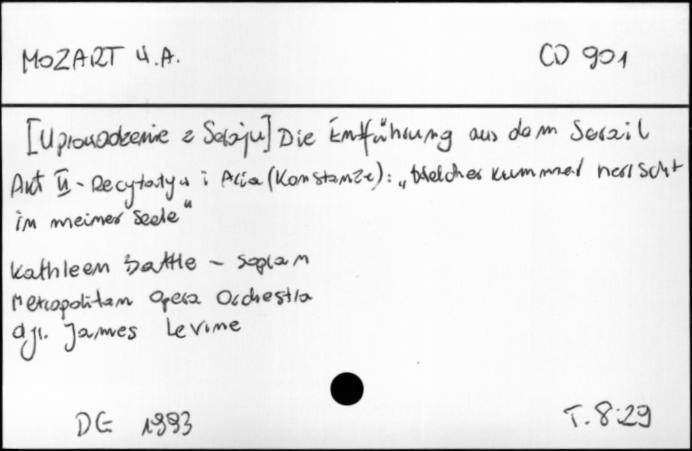 MOZART W.A.
CD 901
[Uprowadzenie z Seraju] Die Entführung aus dem Serail
Akt II - Recytatyw i Aria (Konstanze): „Welcher Kummer herrscht
in meiner Seele"
Kathleen Battle - sopran
Metropolitan Opera Orchestra
dyr. James Levine
DG 1993
T. 8:29